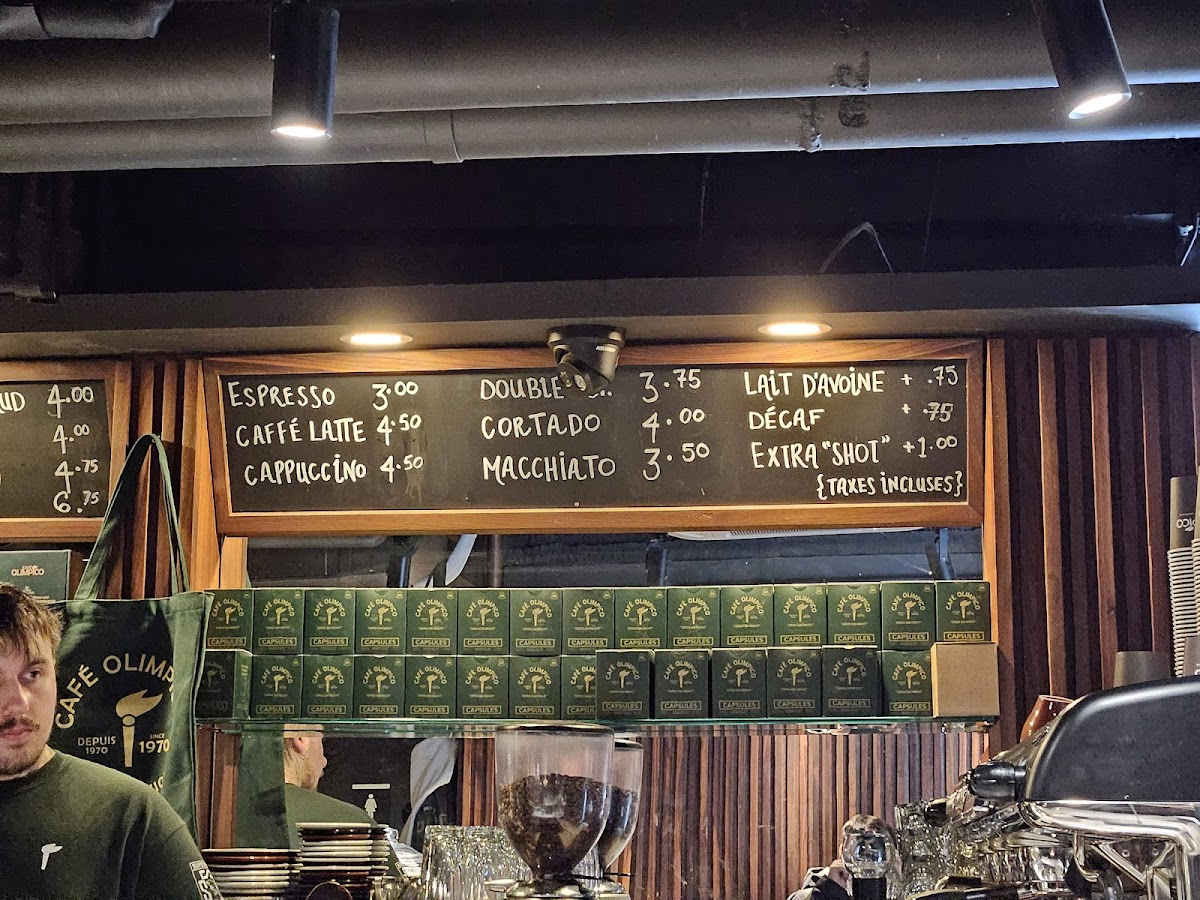 UD 4.00
4.00
4.75
6.75
ESPRESSO 3.00
CAFFÉ LATTE 4.50
CAPPUCCINO 4.50
DOUBLE 3.75
CORTADO 4.00
MACCHIATO 3.50
LAIT D'AVOINE + .75
DÉCAF + .75
EXTRA "SHOT" +1.00
{TAXES INCLUSES}
OLIMPICO
CAFÉ OLIMP
DEPUIS 1970
SINCE 1970
CAFÉ OLIMPICO
CAPSULES